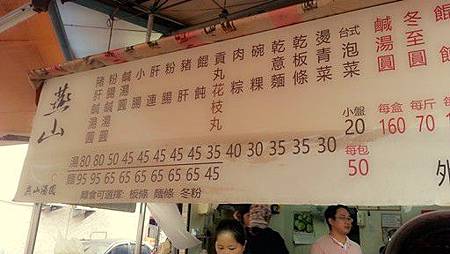 燕山
燕山湯圓
豬肝鹹湯圓
粉腸鹹湯圓
鹹湯圓
小腸
肝連
粉腸
豬肝
餛飩
貢丸花枝丸
肉粽
碗粿
乾意麵
乾板條
燙青菜
台式泡菜
鹹湯圓
冬至圓
湯 80 80 50 45 45 45 45 45 35 40 30 35 35 30
麵 95 95 65 65 65 65 65 65 45
麵食可選擇: 板條 麵條 冬粉
小盤
20
每包
50
每盒
160
每斤
70
每
外